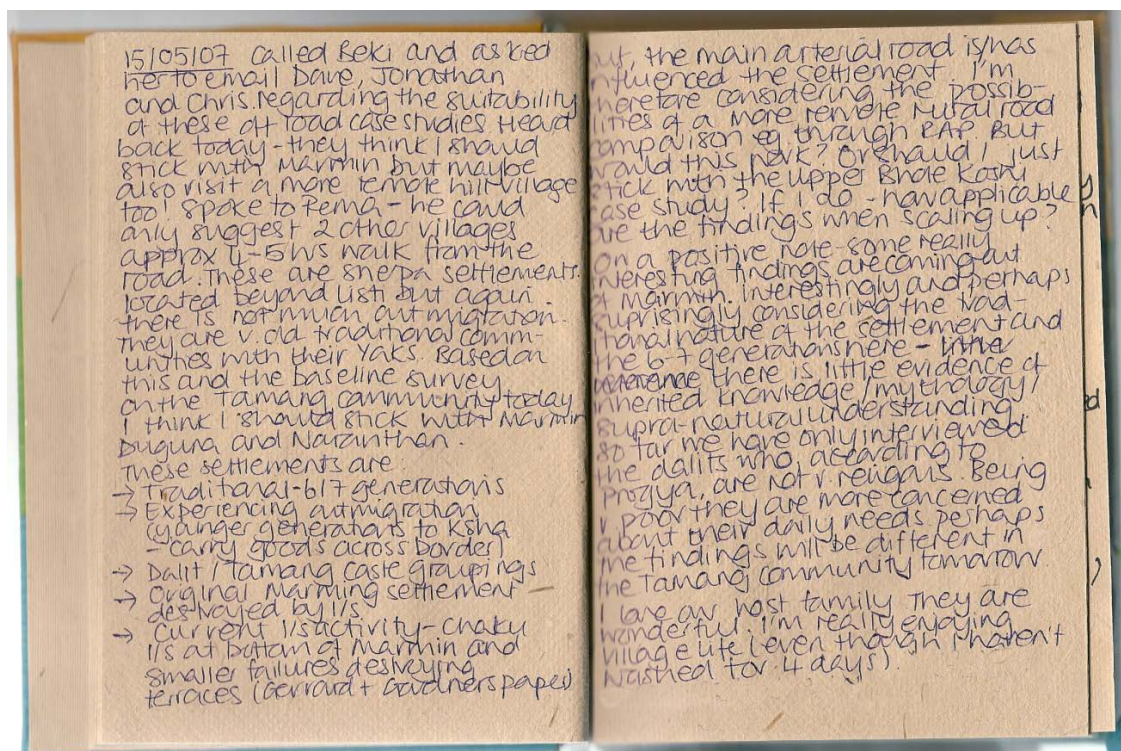 15/05/07 Called Beki and asked
her to email Dave, Jonathan
and Chris regarding the suitability
of these off road case studies. Heard
back today - they think I should
stick with Marmin but maybe
also visit a more remote hill village
too! Spoke to Pema - he could
only suggest 2 other villages
approx 4-5 hrs walk from the
road. These are sherpa settlements.
located beyond Listi but again
there is not much outmigration.
They are v. old traditional comm-
unities with their Yaks. Based on
this and the baseline survey
on the Tamang community today
I think I should stick with Marmin
Duguna and Naranthan.
These settlements are
→ Traditional - 6/7 generations
→ Experiencing outmigration
(younger generations to Ksha
- carry goods across border)
→ Dalit / Tamang caste groupings
→ Original Marming settlement -
destroyed by l/s
→ Current l/s activity - Chaky
l/s at bottom of Marmin and
smaller failures destroying
terraces (Gerrard + Gardners paper)
but, the main arterial road is/has
influenced the settlement. I'm
therefore considering the possib-
ilities of a more remote rural road
comparison eg through RAP. But
would this work? Or should I just
stick with the Upper Bhote Koshi
case study? If I do - how applicable
are the findings when scaling up?
On a positive note - some really
interesting findings are coming out
of Marmin. Interestingly and perhaps
suprisingly considering the trad-
tional nature of the settlement and
the 6-7 generations here - little
there is little evidence of
inherited knowledge / mythology /
supra-natural understanding.
So far we have only interviewed
the dalits who according to
Progya, are not v. religous. Being
v. poor they are more concerned
about their daily needs. Perhaps
the findings will be different in
the Tamang community tomorrow.
I love our host family. They are
wonderful. I'm really enjoying
village life (even though I haven't
washed for 4 days).